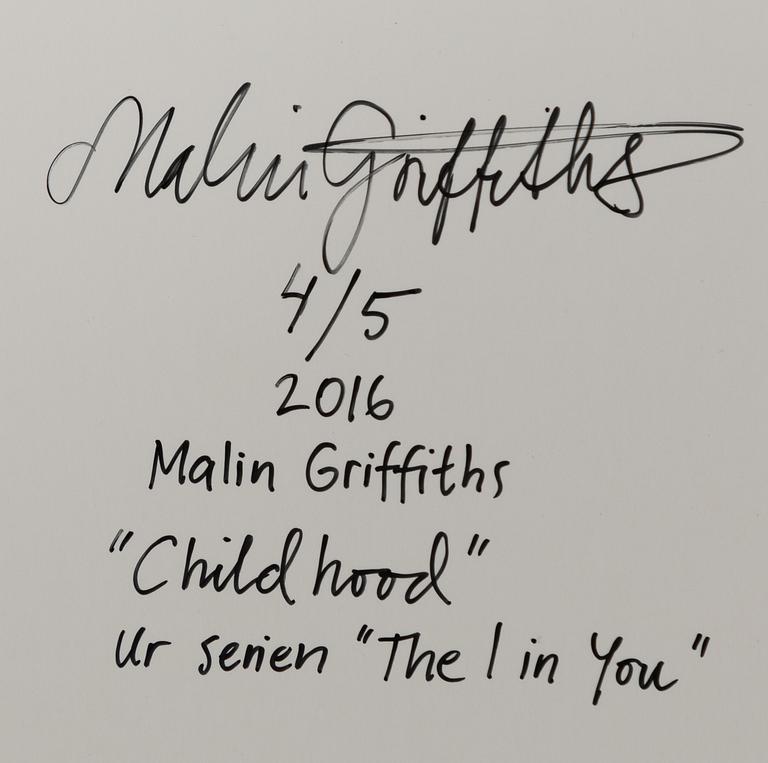 Malin Griffiths
4/5
2016
Malin Griffiths
"Childhood"
Ur serien "The I in You"